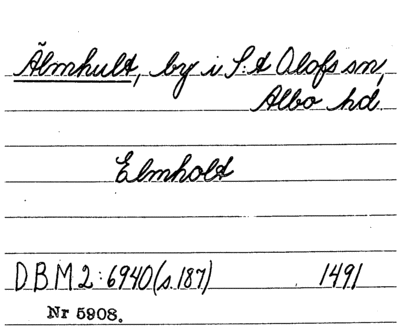 Älmhult, by i S:t Olofs sn,
Albo hd
Elmholt
DBM 2:6940 (s.187) 1491
Nr 5908.